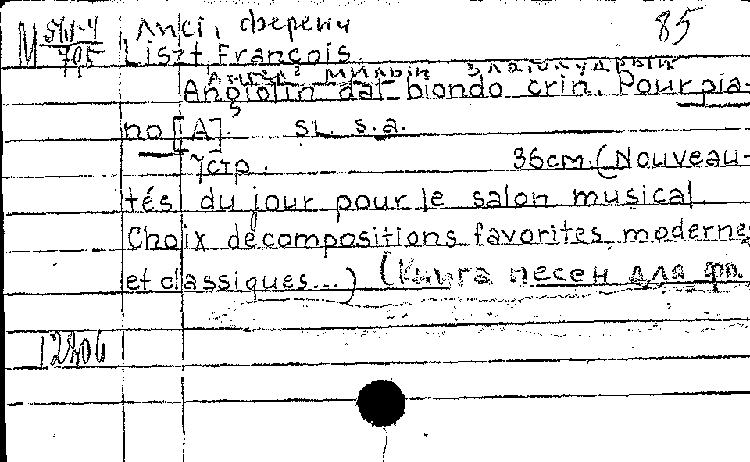 85
М 511-4 Лист, Ференц
795 Liszt François.
Ангел милый златокудрый
Angiolin dal biondo crin. Pour pia-
no [A]. Sl. s.a.
7стр. 36см. (Nouveau-
tés du jour pour le salon musical.
Choix de compositions favorites, modernes
et classiques...) (Книга песен для фп.
12806